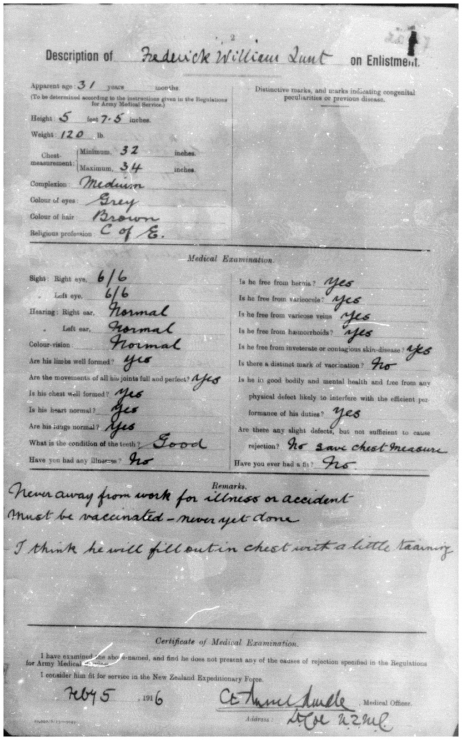 2
Description of Frederick William Lunt on Enlistment.
Apparent age 31 years months
(To be determined according to the instructions given in the Regulations
for Army Medical Service.)
Height 5 feet 7·5 inches
Weight 120 lb
Chest-measurement: Minimum, 32 inches
Maximum, 34 inches
Complexion Medium
Colour of eyes Grey
Colour of hair Brown
Religious profession C of E.
Distinctive marks, and marks indicating congenital
peculiarities or previous disease.
Medical Examination.
Sight: Right eye, 6/6
" Left eye, 6/6
Hearing: Right ear, Normal
" Left ear, Normal
Colour-vision Normal
Are his limbs well formed? Yes
Are the movements of all his joints full and perfect? Yes
Is his chest well formed? Yes
Is his heart normal? Yes
Are his lungs normal? Yes
What is the condition of the teeth? Good
Have you had any illnesses? No
Is he free from hernia? Yes
Is he free from varicocele? Yes
Is he free from varicose veins Yes
Is he free from hæmorrhoids? Yes
Is he free from inveterate or contagious skin-disease? Yes
Is there a distinct mark of vaccination? No
Is he in good bodily and mental health and free from any
physical defect likely to interfere with the efficient per-
formance of his duties? Yes
Are there any slight defects, but not sufficient to cause
rejection? No save chest measure
Have you ever had a fit? No
Remarks.
Never away from work for illness or accident
Must be vaccinated – never yet done
I think he will fill out in chest with a little training
Certificate of Medical Examination.
I have examined the above-named, and find he does not present any of the causes of rejection specified in the Regulations
for Army Medical Service.
I consider him fit for service in the New Zealand Expeditionary Force.
Feby 5, 1916
, Medical Officer.
Address: N.Z.M.C.